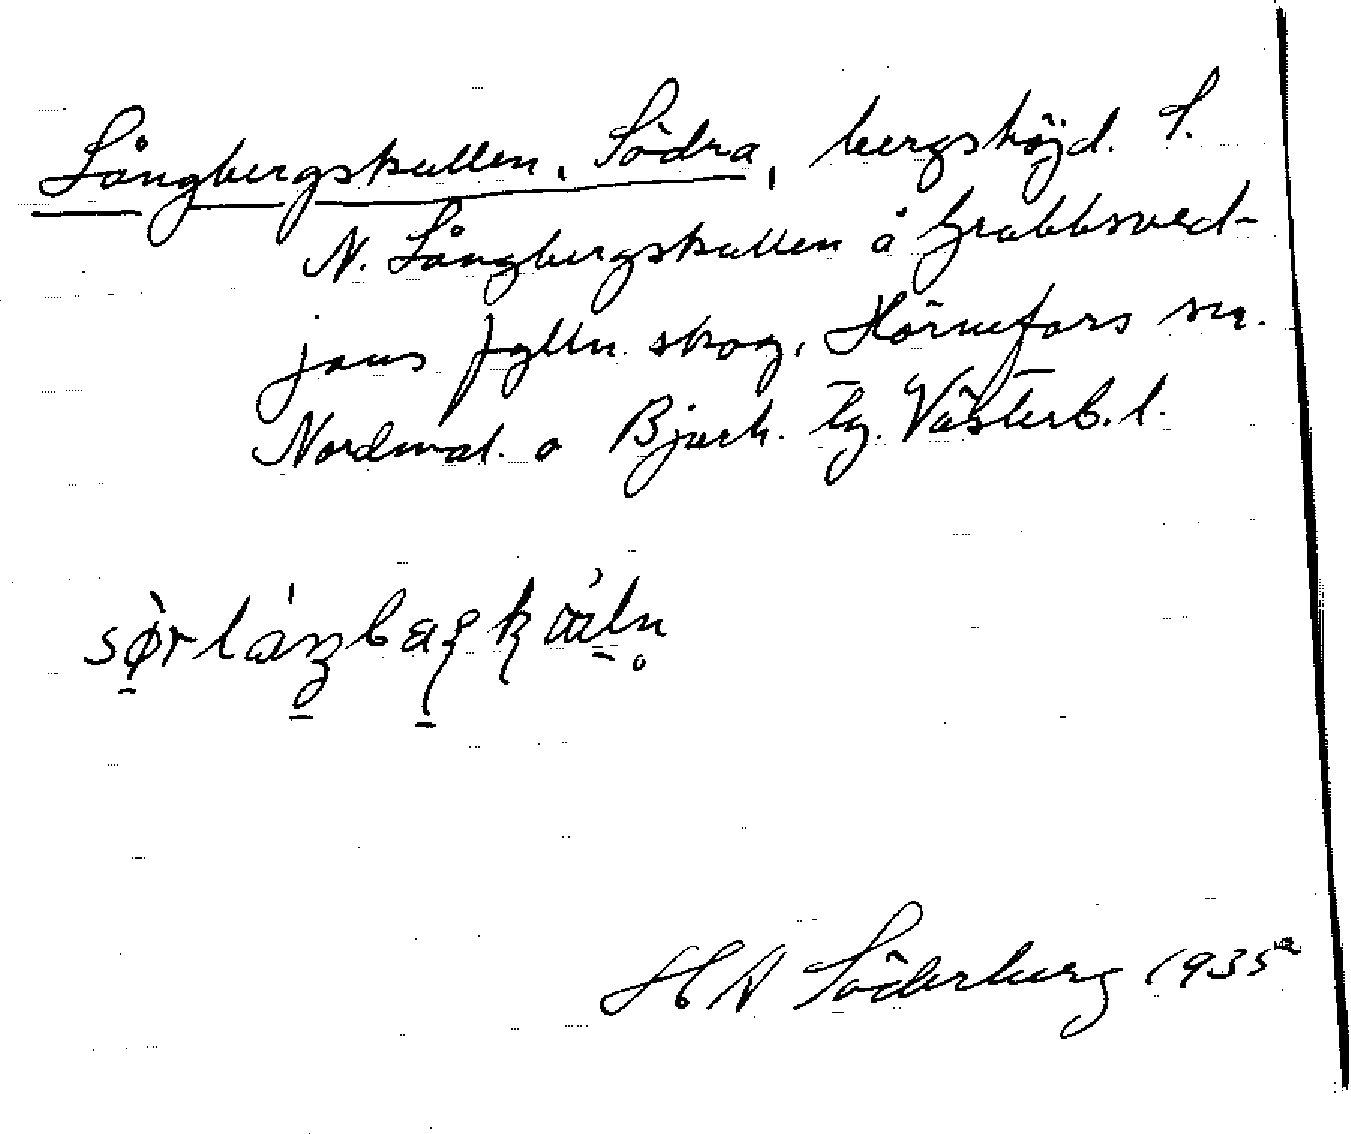 Långbergskullen, Södra, bergshöjd. S.
N. Långbergskullen å Grabbsved-
jans fgttn. skog, Hörnefors sn.
Nordmal. o Bjurh. tg. Västerb. l.
H N Söderberg 1935